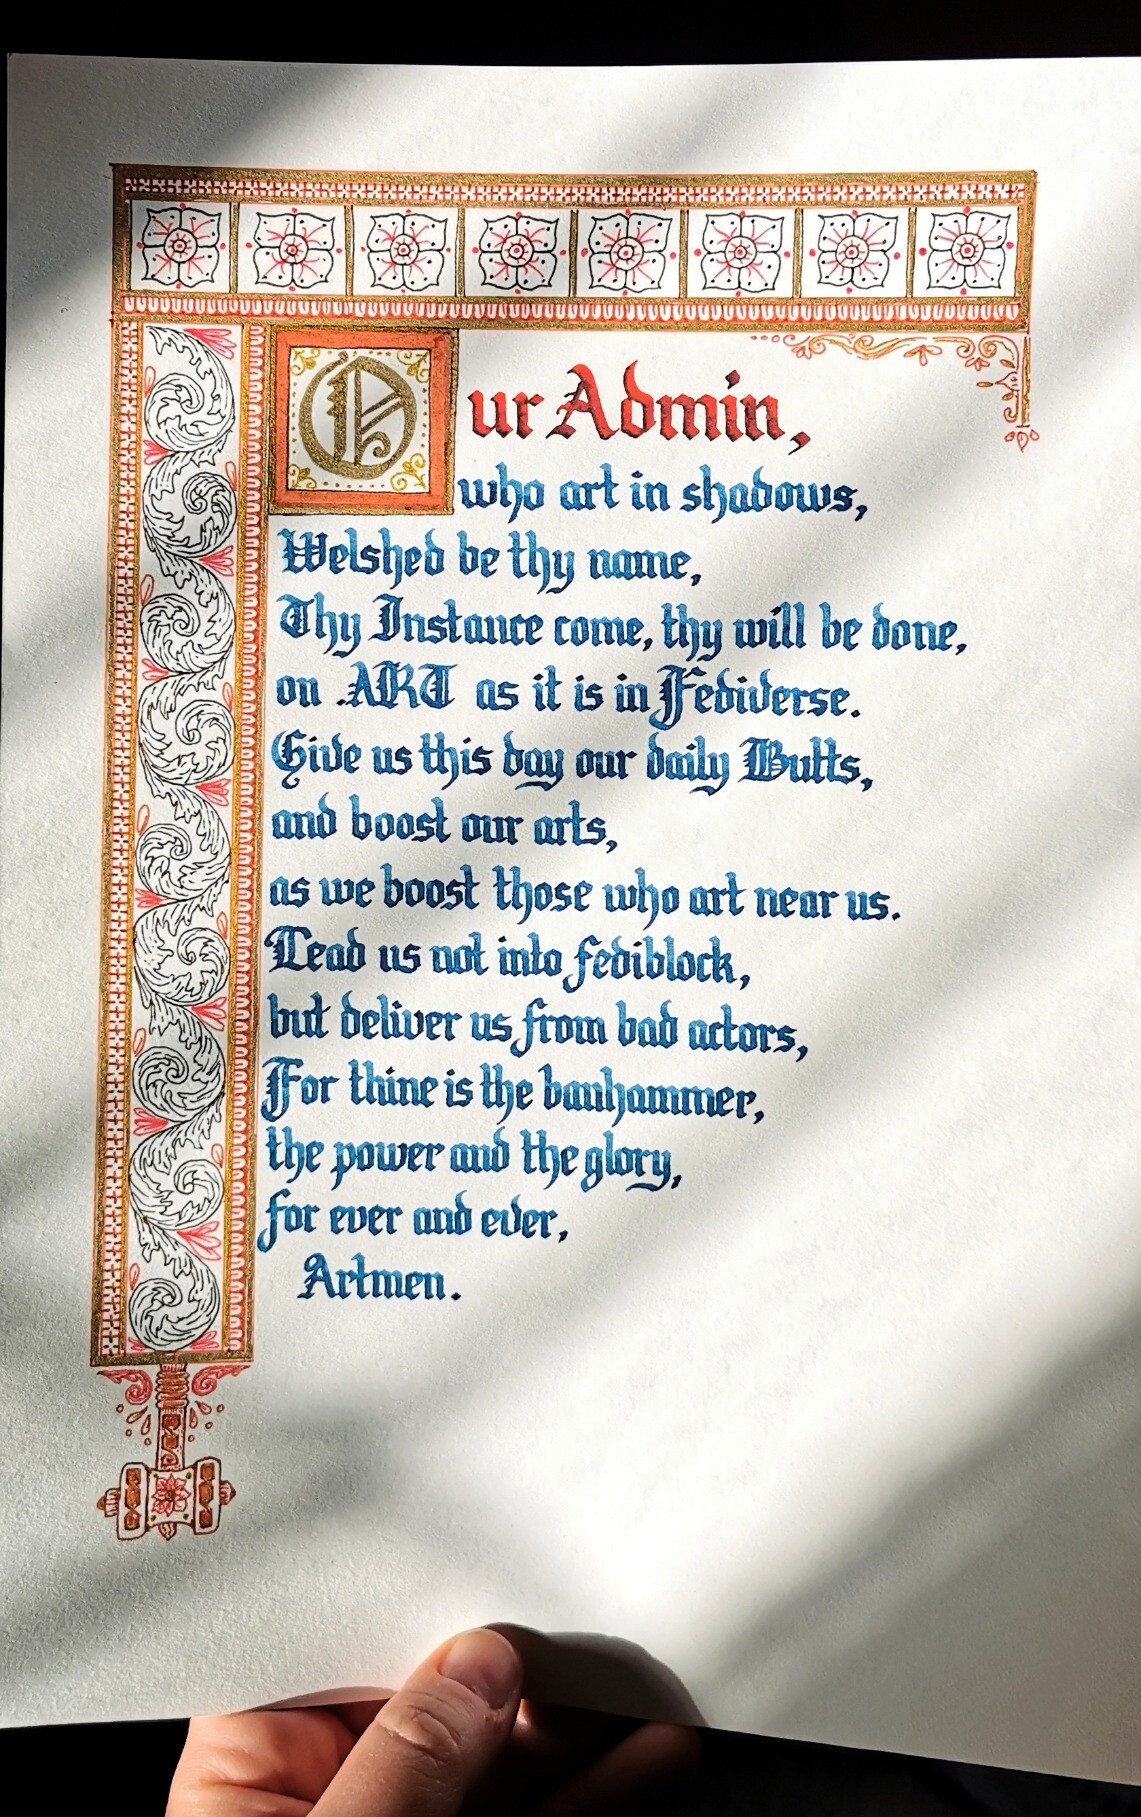 Our Admin,
who art in shadows,
Welshed be thy name,
Thy Instance come, thy will be done,
on .ART as it is in Fediverse.
Give us this day our daily Butts,
and boost our arts,
as we boost those who art near us.
Lead us not into fediblock,
but deliver us from bad actors,
For thine is the banhammer,
the power and the glory,
for ever and ever,
Artmen.